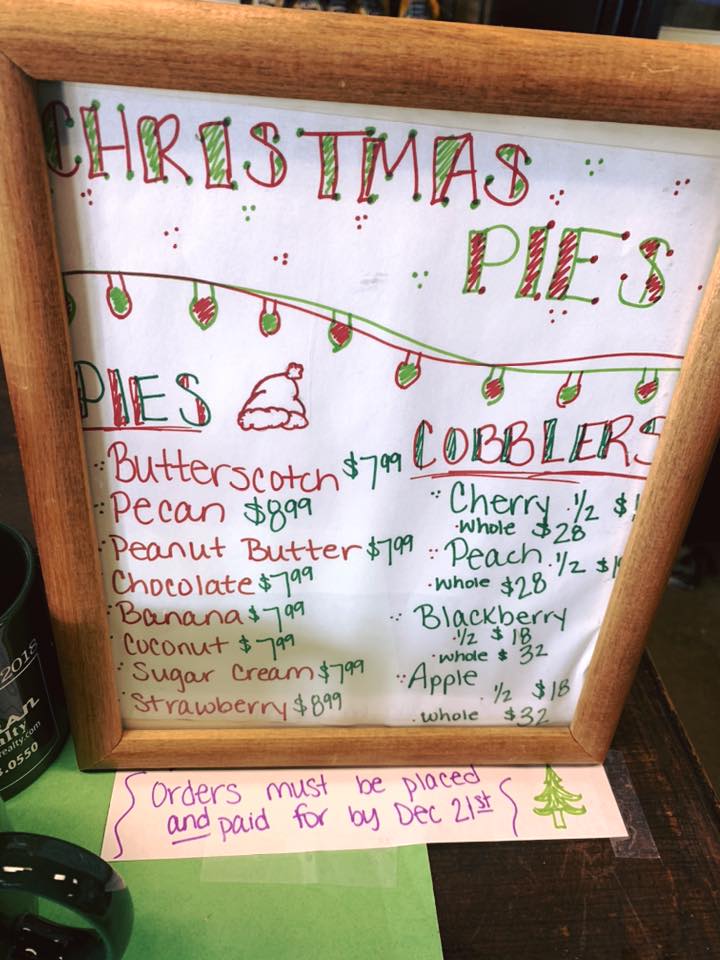 CHRISTMAS
PIES
PIES
Butterscotch $799
Pecan $899
Peanut Butter $799
Chocolate $799
Banana $799
Coconut $799
Sugar Cream $799
Strawberry $899
COBBLERS
Cherry 1/2 $
whole $28
Peach 1/2 $1
whole $28
Blackberry
1/2 $18
whole $32
Apple
1/2 $18
whole $32
Orders must be placed
and paid for by Dec 21st
2018
.0550